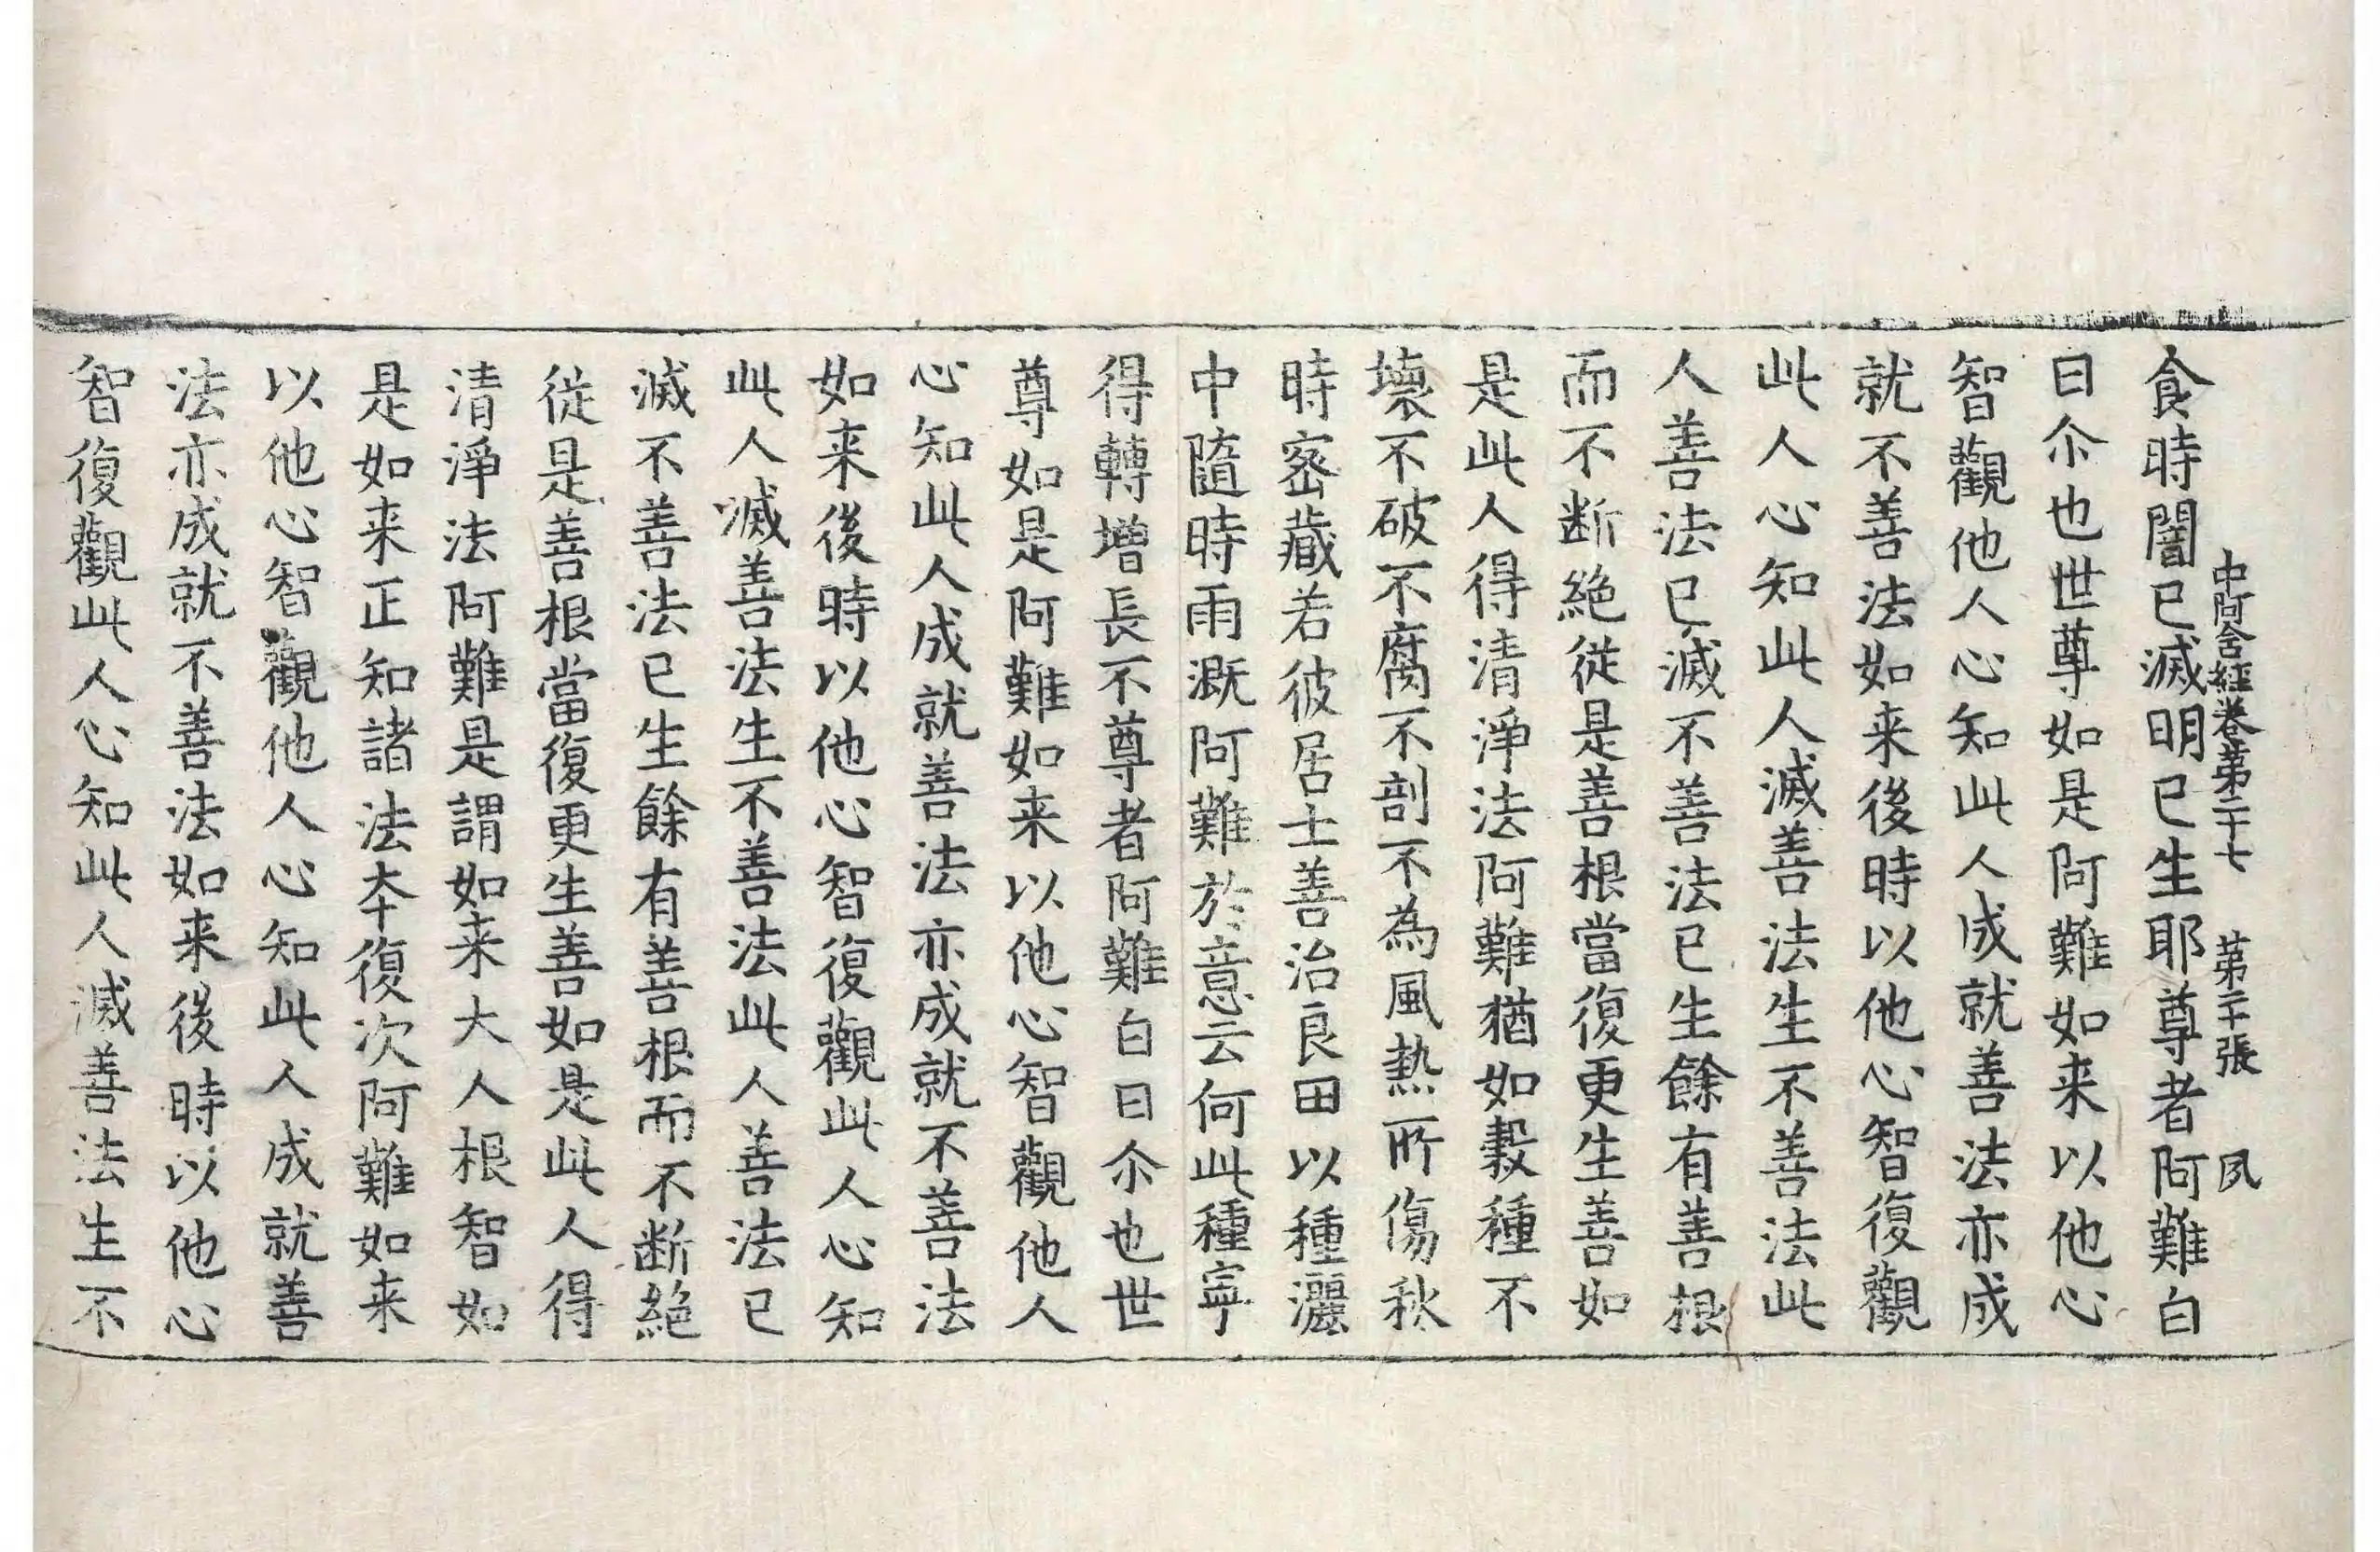 中阿含經卷第二十七　第二十張　夙
食時闇已滅明已生耶尊者阿難白
曰尒也世尊如是阿難如来以他心
智觀他人心知此人成就善法亦成
就不善法如来後時以他心智復觀
此人心知此人滅善法生不善法此
人善法已滅不善法已生餘有善根
而不断絶從是善根當復更生善如
是此人得清淨法阿難猶如穀種不
壞不破不腐不剖不為風熱所傷秋
時密藏若彼居士善治良田以種灑
中隨時雨溉阿難於意云何此種寧
得轉增長不尊者阿難白曰尒也世
尊如是阿難如来以他心智觀他人
心知此人成就善法亦成就不善法
如来後時以他心智復觀此人心知
此人滅善法生不善法此人善法已
滅不善法已生餘有善根而不断絶
從是善根當復更生善如是此人得
清淨法阿難是謂如来大人根智如
是如来正知諸法夲復次阿難如来
以他心智觀他人心知此人成就善
法亦成就不善法如来後時以他心
智復觀此人心知此人滅善法生不